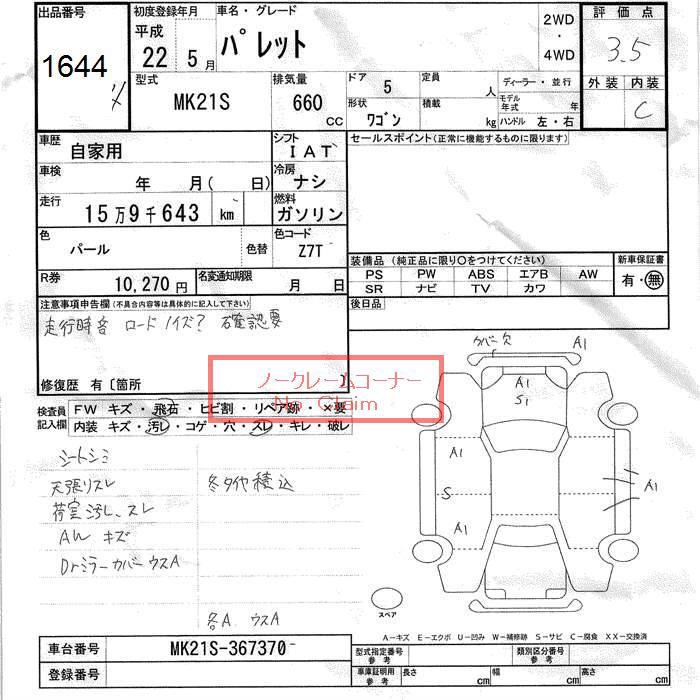 出品番号 初度登録年月 車名・グレード 2WD 評価点
1644 平成 22 5月 パレット ・ 4WD 3.5
型式 排気量 ドア 5 定員 人 ディーラー・並行 外装 内装
MK21S 660 CC 形状 ワゴン 積載 kg モデル年式 年 C
ハンドル 左・右
車歴 自家用 シフト IAT セールスポイント(正常に機能するものに限ります)
車検 年 月( 日) 冷房 ナシ
走行 15万9千643 km 燃料 ガソリン
色 パール 色替 色コード Z7T
装備品(純正品に限り○をつけてください) 新車保証書
PS PW ABS エアB AW 有・無
SR ナビ TV カワ
R券 10,270円 名変通知期限 月 日 後日品
注意事項申告欄(不具合内容等は具体的に記入して下さい)
走行時音 ロードノイズ? 確認要
修復歴 有〔箇所
ノークレームコーナー
No Claim
検査員記入欄 FW キズ・飛石・ヒビ割・リペア跡・×要
内装 キズ・汚レ・コゲ・穴・スレ・キレ・破レ
シートシミ
天張リスレ 冬タイヤ積込
荷室汚レ、スレ
AW キズ
Drミラーカバー ウスA
各A、ウスA
カバー欠 A1
A1
S1
A1
S
A1
A1
スペア
A-キズ E-エクボ U-凹み W-補修跡 S-サビ C-腐食 XX-交換済
車台番号 MK21S-367370 型式指定番号 参考 類別区分番号 参考
登録番号 車庫証明用 参考 長さ cm 幅 cm 高さ cm